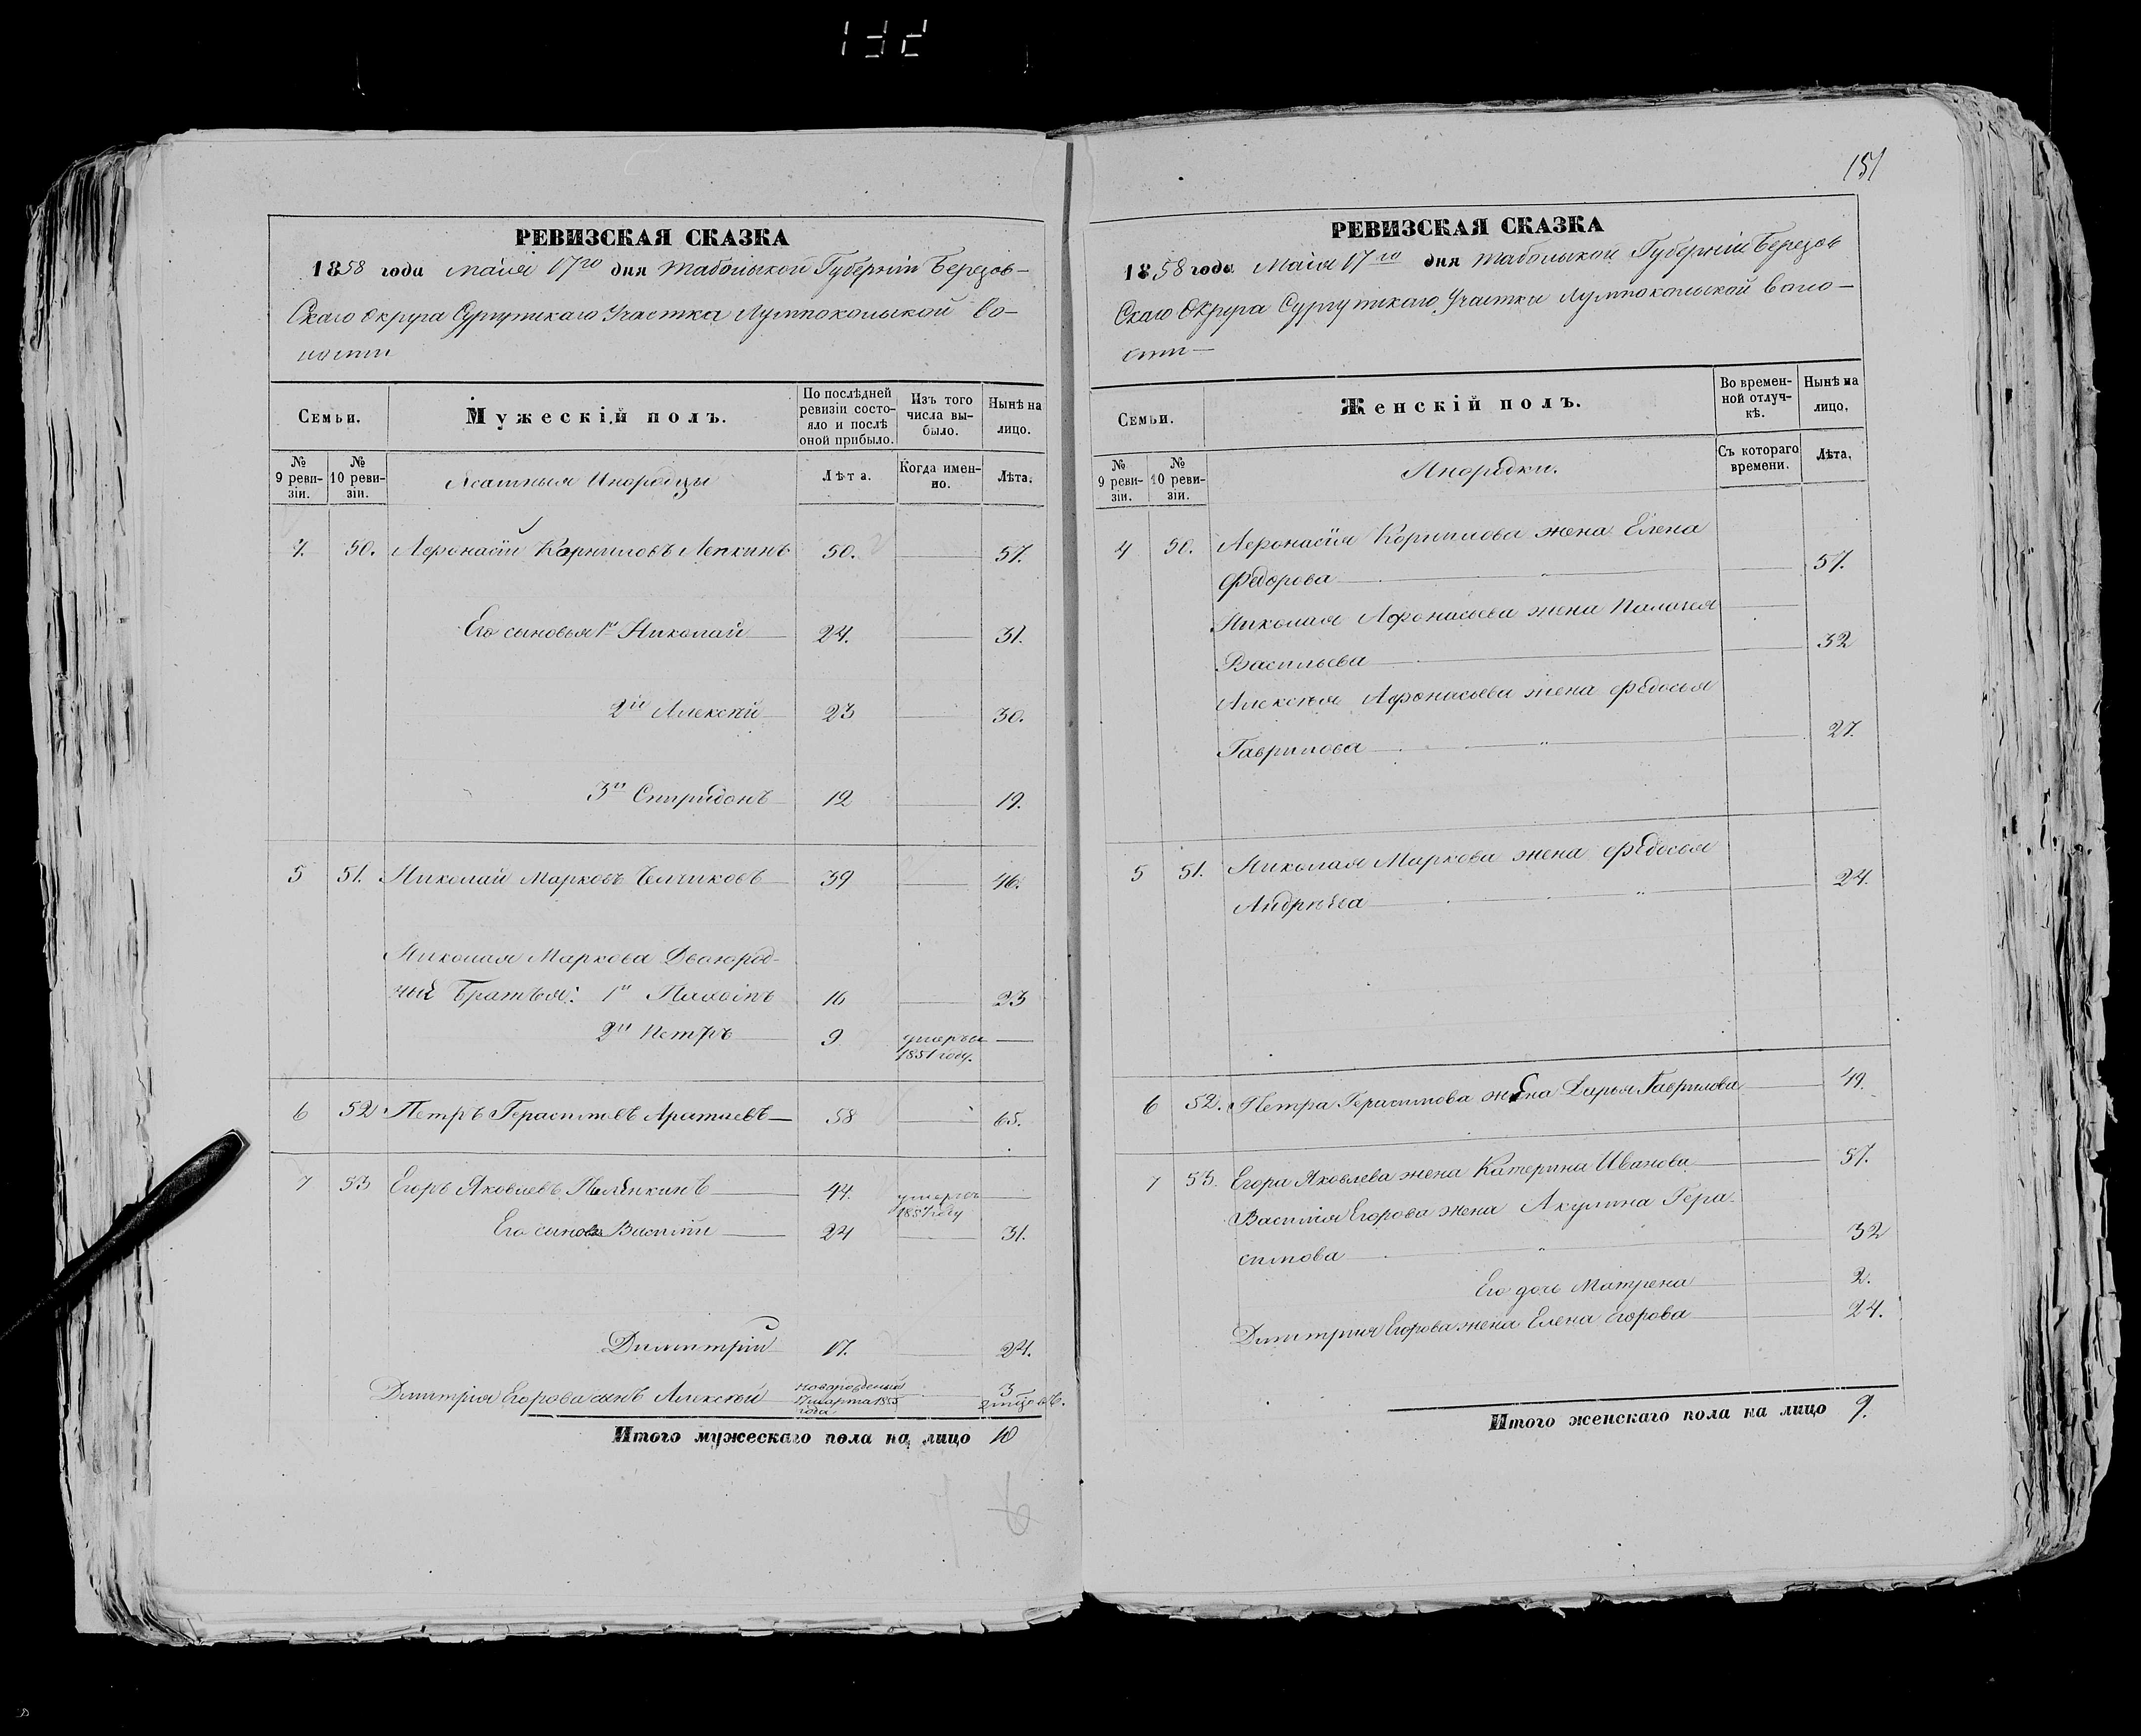 151
РЕВИЗСКАЯ СКАЗКА
1858 года маія 17го дня Тобольской Губерніи Березов-
скаго округа Сургутскаго Участка Лумпокольской во-
лости
Семьи.
Мужескій полъ.
По послѣдней ревизіи состо-яло и послѣ оной прибыло.
Изъ того числа вы-было.
Нынѣ на лицо.
№ 9 реви-зіи.
№ 10 реви-зіи.
Ясашныя Инородцы
Лѣта.
Когда имен-но.
Лѣта.
50. Афонасій Корниловъ Лепкинъ 50. 57.
Его сыновья 1й Николай 24. 31.
2й Алексѣй 23 30.
3й Спиридонъ 12 19.
5 51. Николай Марковъ 39 46.
Николая Маркова Двоюрод-
ныя Братья: 1й 16 23
2й Петръ 9 умеръ 1851 году.
6 52 Петръ Герасимовъ 58 65.
7 53 Егоръ Яковлевъ 44. умеръ 1857 году
Его сыновья Василій 24 31.
Димитрій 17. 24.
Дмитрія Егорова сынъ Алексѣй новорожденный 17 марта 1855 года 3
Итого мужескаго пола на лицо 10
РЕВИЗСКАЯ СКАЗКА
1858 года Маія 17го дня Тобольской Губерніи Березов
скаго Округа Сургутскаго Участка Лумпокольской воло-
сти
Семьи.
Женскій полъ.
Во времен-ной отлуч-кѣ.
Нынѣ на лицо.
№ 9 реви-зіи.
№ 10 реви-зіи.
Инородки.
Съ котораго времени.
Лѣта.
4 50. Афонасія Корнилова жена Елена
Федорова 57.
Николая Афонасьева жена Палагея
Васильева 32
Алексѣя Афонасьева жена Федосья
Гаврилова 27.
5 51. Николая Маркова жена Федосья
Андрѣева 24.
6 52. Петра Герасимова жена Дарья Гаврилова 49.
7 53. Егора Яковлева жена Катерина Иванова 57.
Василія Егорова жена Акулина Гера-
симова 32
Его дочь Матрена 2.
Димитрія Егорова жена Елена Егорова 24.
Итого женскаго пола на лицо 9.